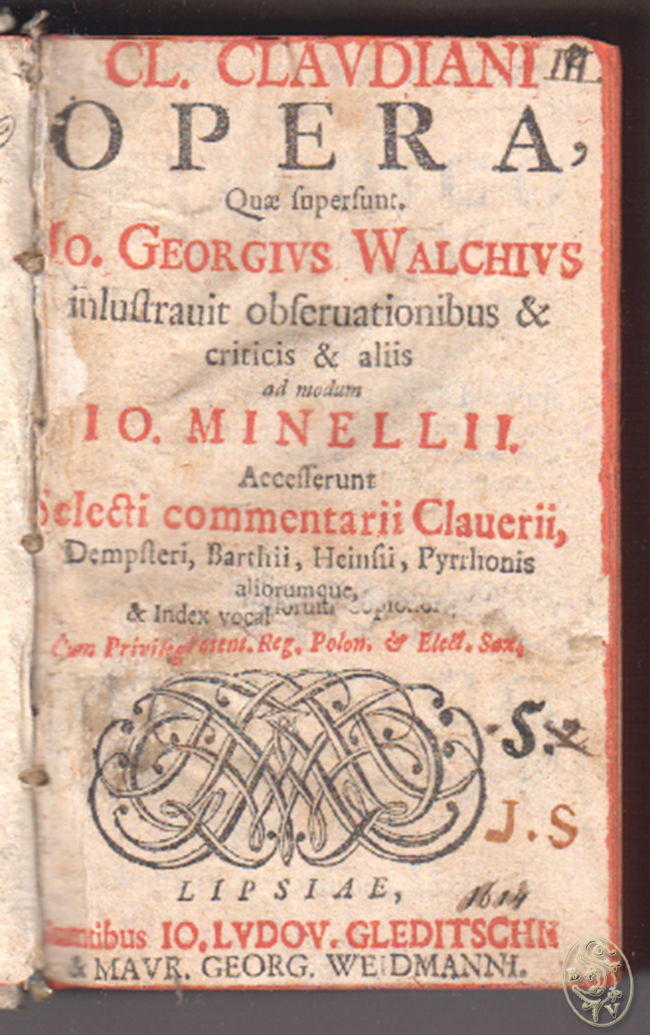 CL. CLAVDIANI
III.
OPERA,
Quæ ſuperſunt.
IO. GEORGIVS WALCHIVS
inluſtrauit obſeruationibus &
criticis & aliis
ad modum
IO. MINELLII.
Acceſſerunt
Selecti commentarii Clauerii,
Dempſteri, Barthii, Heinſii, Pyrrhonis
aliorumque,
& Index vocal
Cum Privileg otent. Reg. Polon. & Elect. Sax.
S.
J.S
LIPSIAE,
1614
IO. LVDOV. GLEDITSCHII
& MAVR. GEORG. WEIDMANNI.